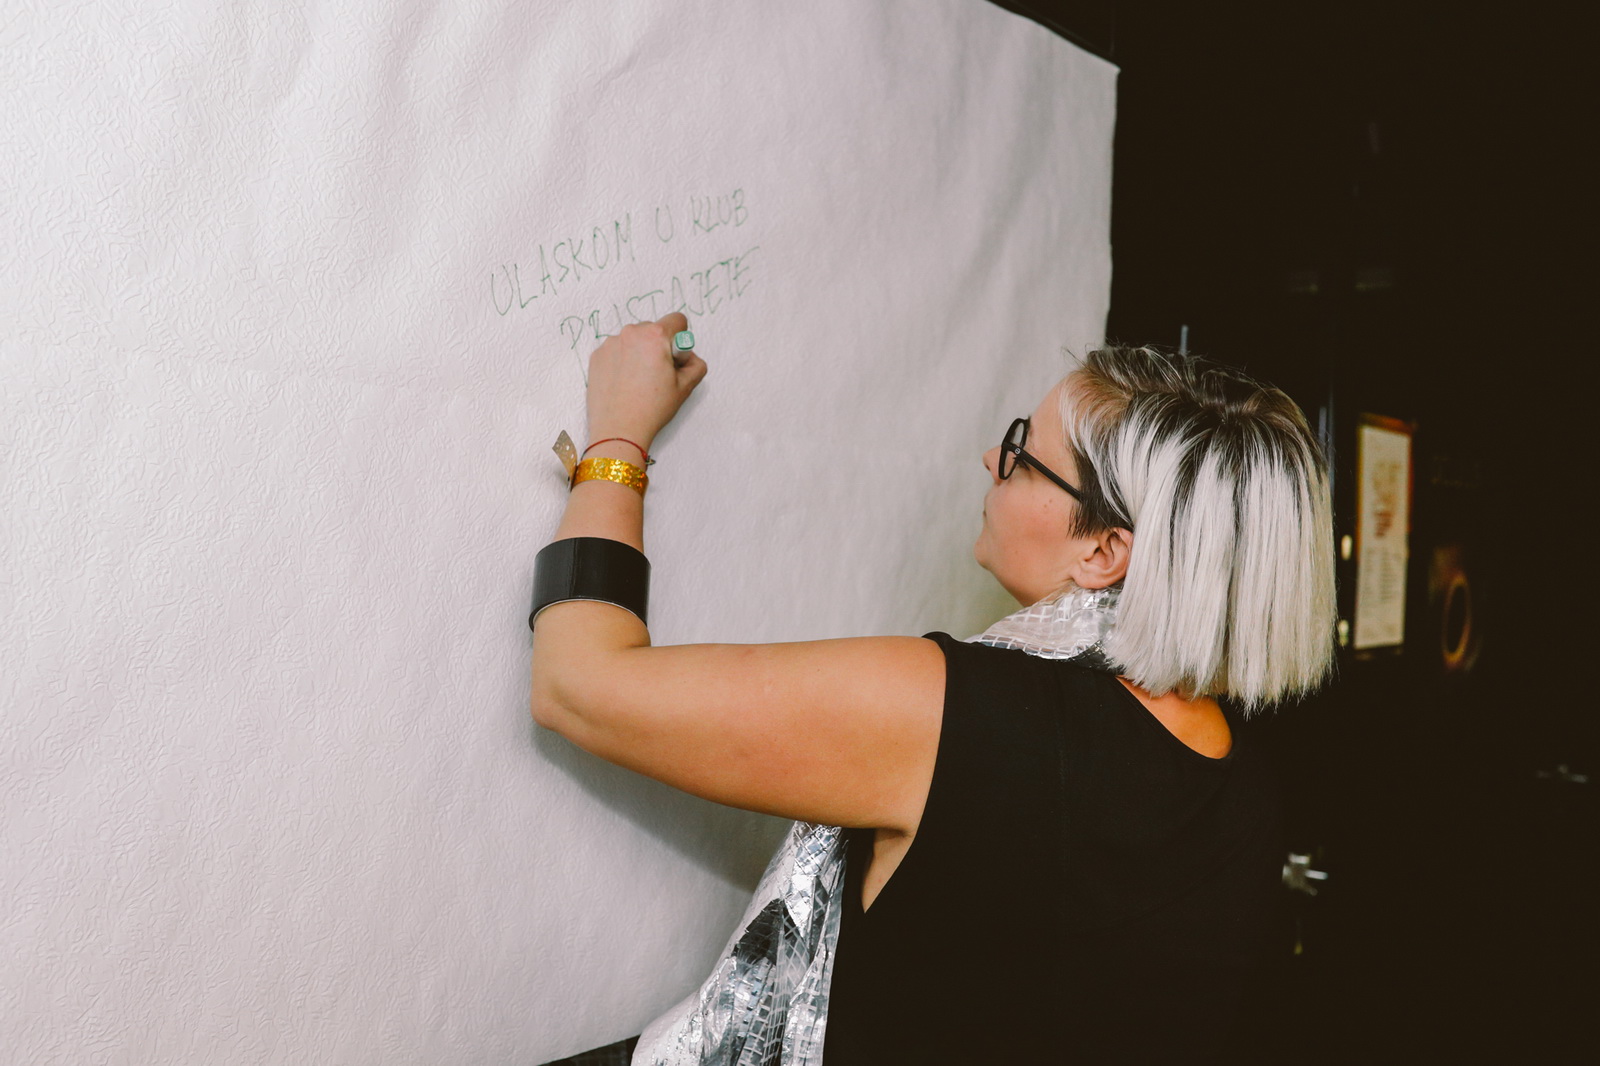 ULASKOM U KLUB
PRISTAJETE